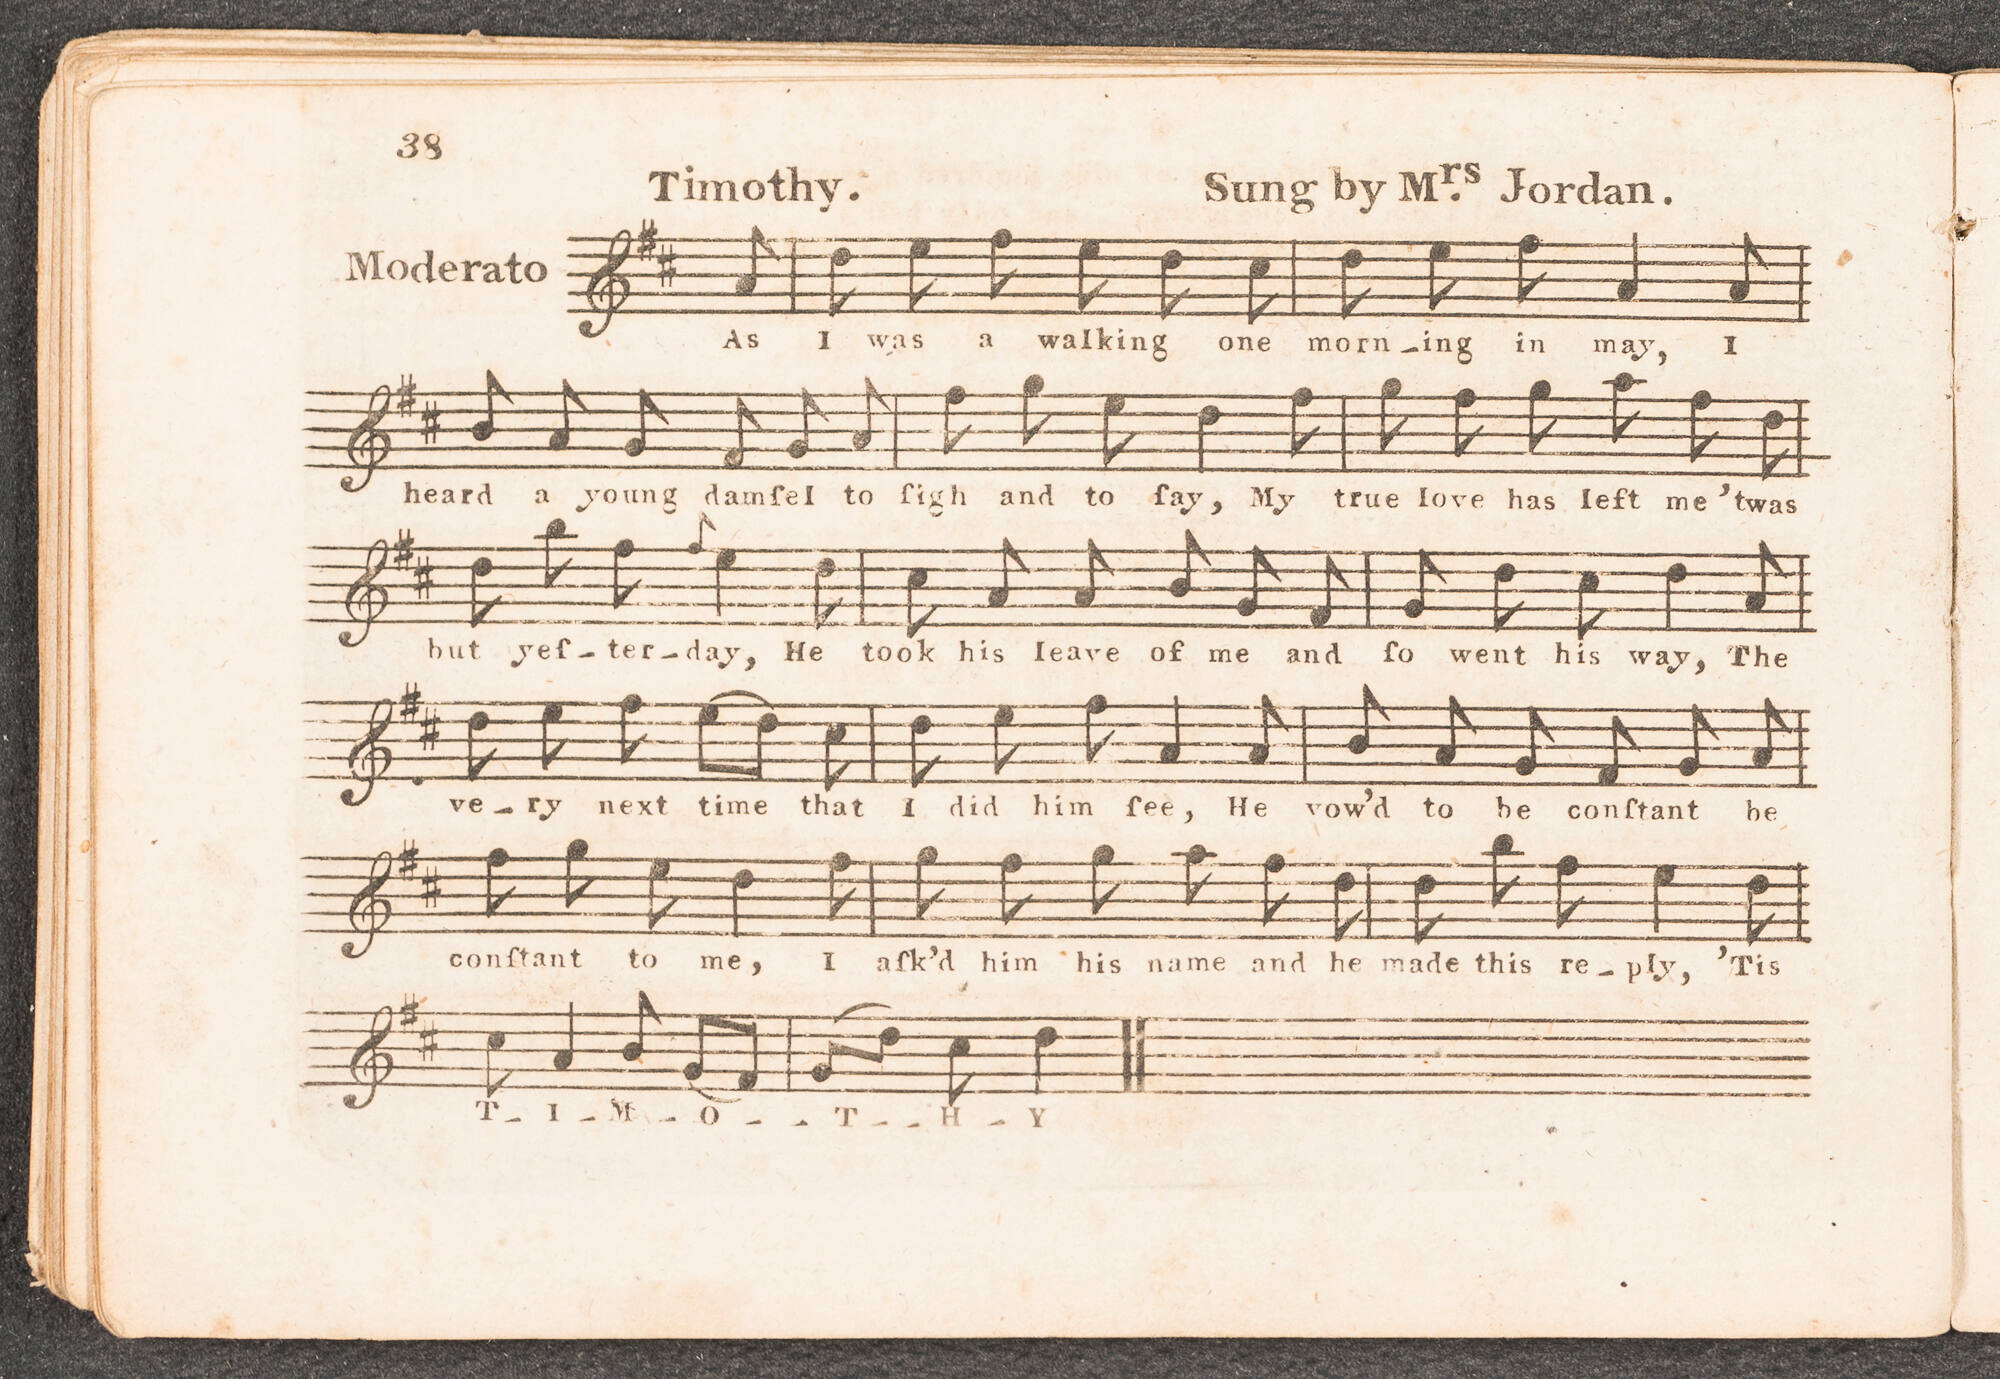 38
Timothy. Sung by Mrs. Jordan.
Moderato
As I was a walking one morn-ing in may, I
heard a young damſel to ſigh and to ſay, My true love has left me 'twas
but yeſ-ter-day, He took his leave of me and ſo went his way, The
ve-ry next time that I did him ſee, He vow'd to be conſtant be
conſtant to me, I aſk'd him his name and he made this re-ply, 'Tis
T - I - M - O - - T - - H - Y